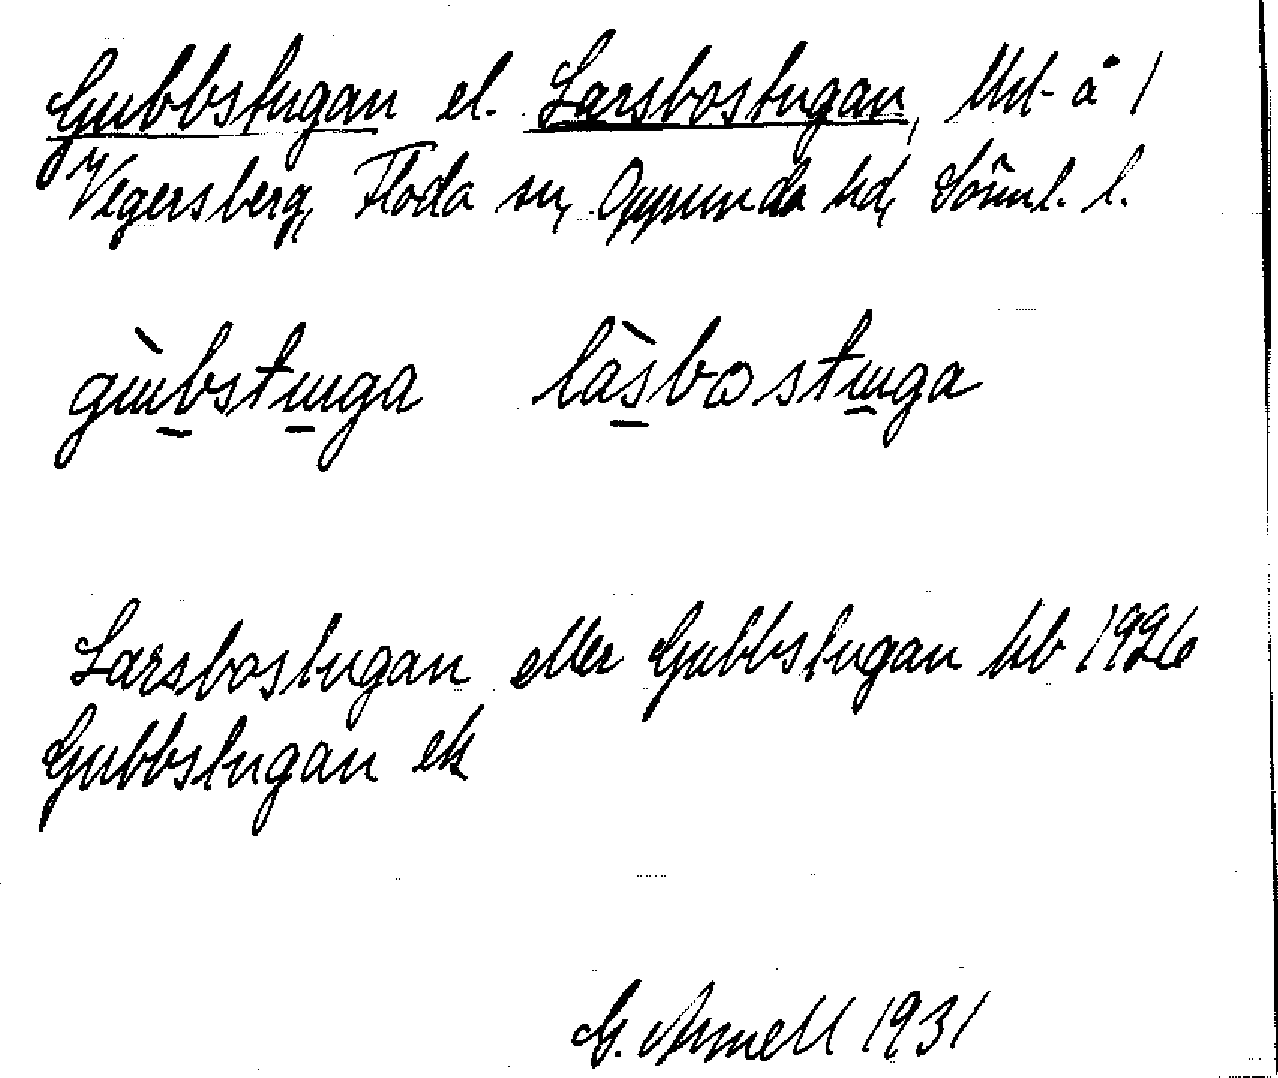 Gubbstugan el. Larsbostugan, Utet å 1
Vegersberg, Floda sn, Oppunda hd, Sörml. l.
gùbstuga làsbostuga
Larsbostugan eller Gubbstugan kb 1926
Gubbstugan ek
G. Armell 1931